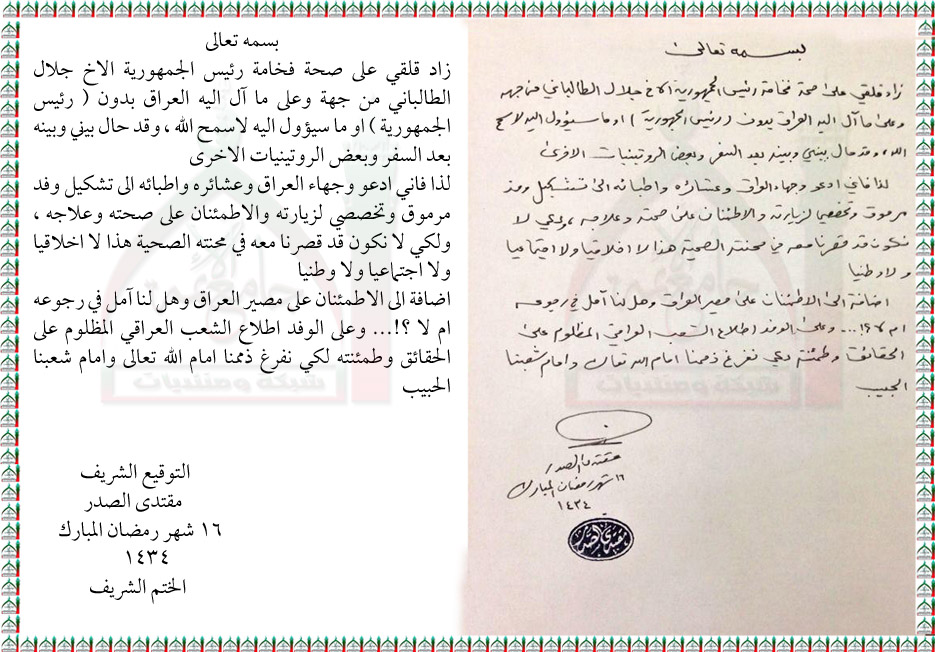 بسمه تعالى
زاد قلقي على صحة فخامة رئيس الجمهورية الاخ جلال
الطالباني من جهة وعلى ما آل اليه العراق بدون ( رئيس
الجمهورية ) او ما سيؤول اليه لاسمح الله ، وقد حال بيني وبينه
بعد السفر وبعض الروتينيات الاخرى
لذا فاني ادعو وجهاء العراق وعشائره واطبائه الى تشكيل وفد
مرموق وتخصصي لزيارته والاطمئنان على صحته وعلاجه ،
ولكي لا نكون قد قصرنا معه في محنته الصحية هذا لا اخلاقيا
ولا اجتماعيا ولا وطنيا
اضافة الى الاطمئنان على مصير العراق وهل لنا آمل في رجوعه
ام لا ؟!... وعلى الوفد اطلاع الشعب العراقي المظلوم على
الحقائق وطمئنته لكي نفرغ ذممنا امام الله تعالى وامام شعبنا
الحبيب
التوقيع الشريف
مقتدى الصدر
١٦ شهر رمضان المبارك
١٤٣٤
الختم الشريف
بسمه تعالى
زاد قلقي على صحة فخامة رئيس الجمهورية الاخ جلال الطالباني من جهه
وعلى ما آل اليه العراق بدون ( رئيس الجمهورية ) او ما سيؤول اليه لاسمح
الله ، وقد حال بيني وبينه بعد السفر وبعض الروتينيات الاخرى
لذا فاني ادعو وجهاء العراق وعشائره واطبائه الى تشكيل وفد
مرموق وتخصصي لزيارته والاطمئنان على صحته وعلاجه ، ولكي لا
نكون قد قصرنا معه في محنته الصحية هذا لا اخلاقيا ولا اجتماعيا
ولا وطنيا
اضافة الى الاطمئنان على مصير العراق وهل لنا آمل في رجوعه
ام لا ؟!... وعلى الوفد اطلاع الشعب العراقي المظلوم على
الحقائق وطمئنته لكي نفرغ ذممنا امام الله تعالى وامام شعبنا
الحبيب
مقتدى الصدر
١٦ شهر رمضان المبارك
١٤٣٤
مقتدى الصدر
شبكة ومنتديات
شبكة ومنتديات